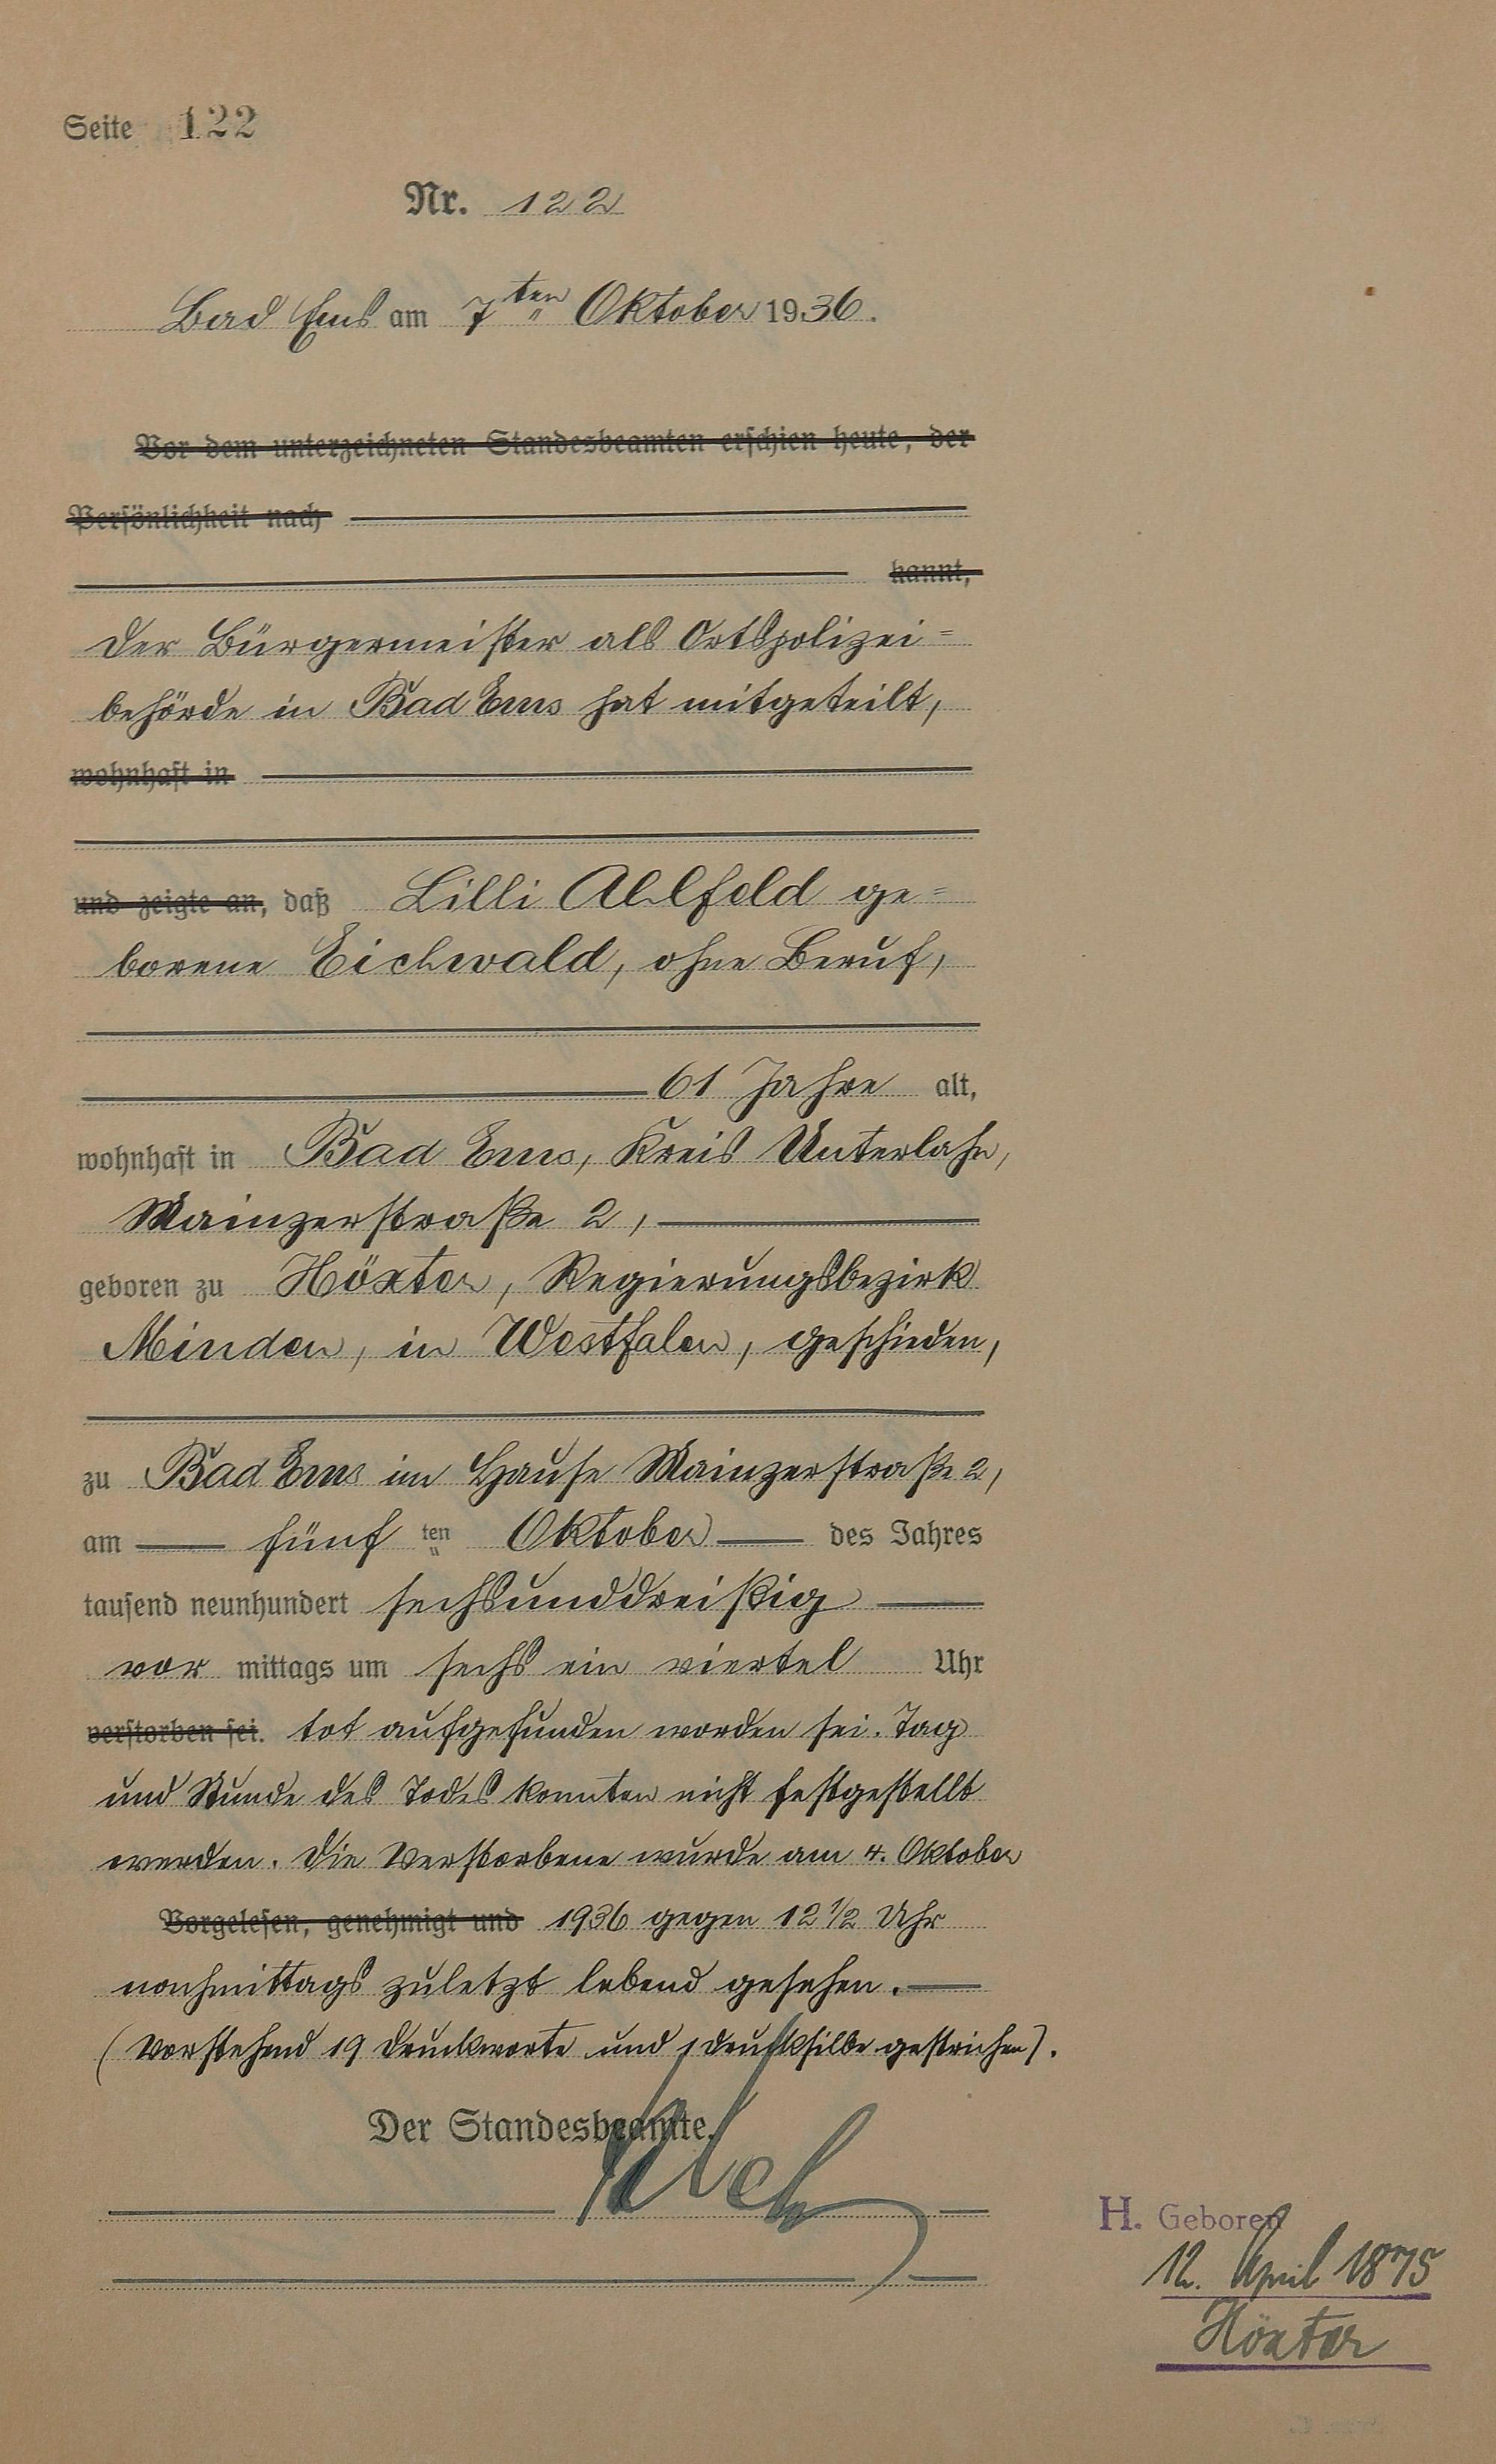 Seite 122
Nr. 122
Bad Ems am 7ten Oktober 1936.
Vor dem unterzeichneten Standesbeamten erschien heute, der
Persönlichkeit nach
kannt,
der Bürgermeister als Ortspolizei=
behörde in Bad Ems hat mitgeteilt,
wohnhaft in
und zeigte an, daß Lilli Ahlfeld ge=
borene Eichwald, ohne Beruf,
61 Jahre alt,
wohnhaft in Bad Ems, Kreis Unterlahn,
Mainzerstraße 2,
geboren zu Höxter, Regierungsbezirk
Minden, in Westfalen, geschieden,
zu Bad Ems im Hause Mainzerstraße 2,
am fünf ten Oktober des Jahres
tausend neunhundert sechsunddreißig
vor mittags um sechs ein viertel Uhr
verstorben sei. tot aufgefunden worden sei. Tag
und Stunde des Todes konnten nicht festgestellt
werden. Die Verstorbene wurde am 4. Oktober
Vorgelesen, genehmigt und 1936 gegen 12 1/2 Uhr
nachmittags zuletzt lebend gesehen.
(Vorstehend 19 Druckworte und 1 Drucksilbe gestrichen).
Der Standesbeamte.
H. Geboren
12. April 1875
Höxter